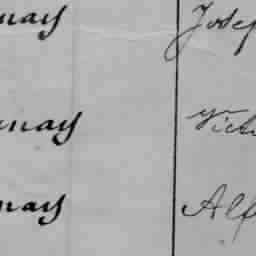 nay Josep
nay Victo
nay Alf